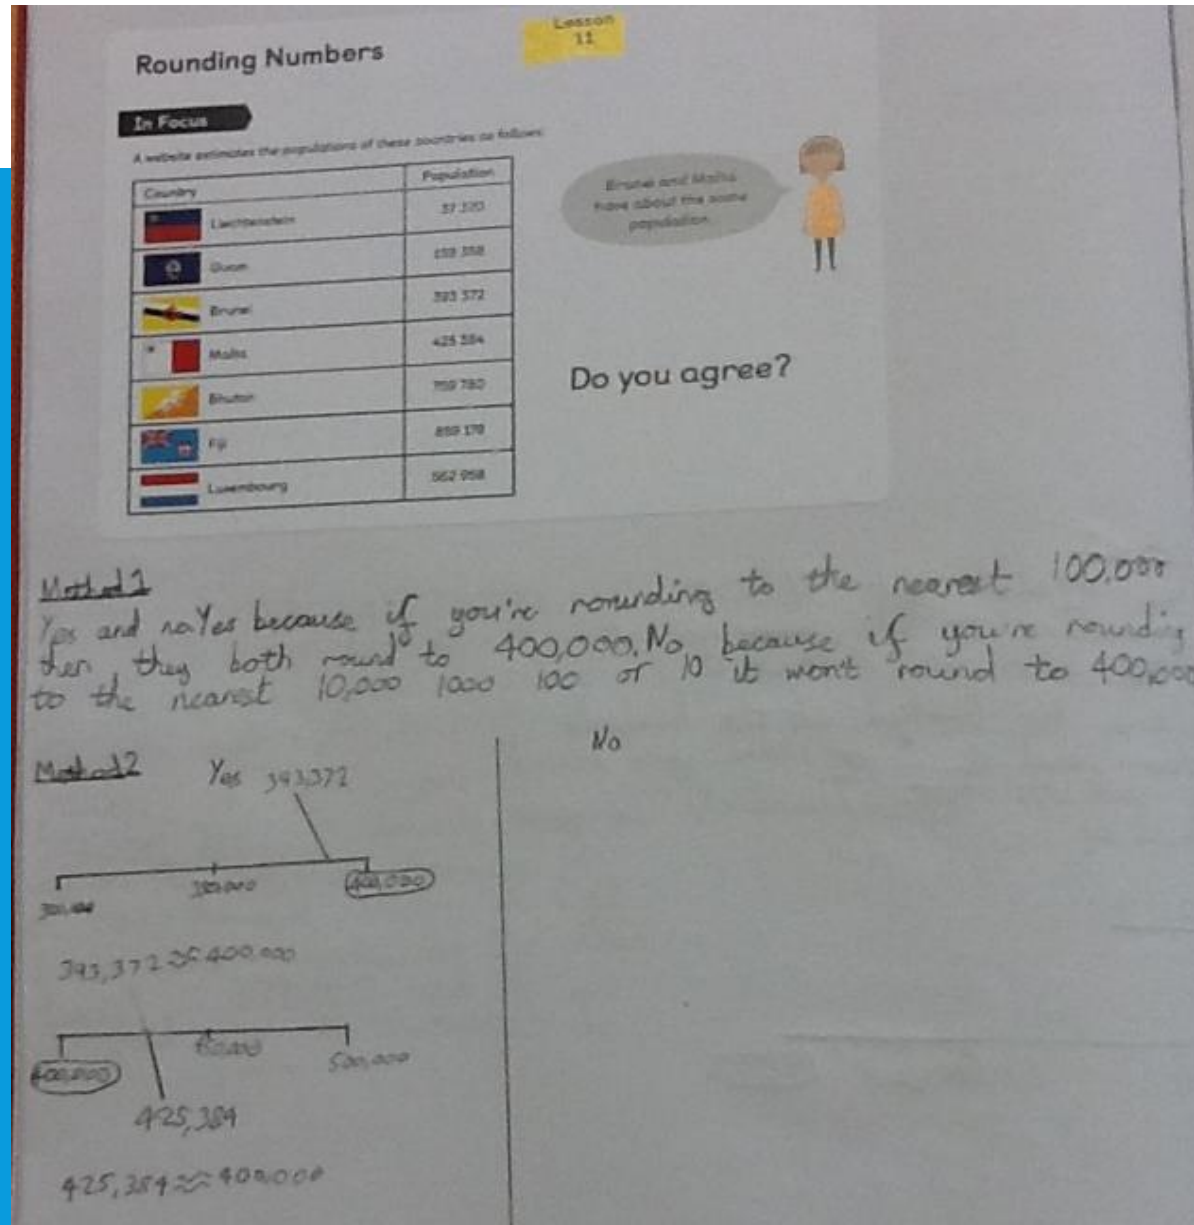 Lesson
11
Rounding Numbers
In Focus
A website estimates the populations of these countries as follows.
Country Population
Liechtenstein 37 320
Guam 159 358
Brunei 393 372
Malta 425 384
Bhutan 759 780
Fiji 859 178
Luxembourg 562 958
Brunei and Malta
have about the same
population.
Do you agree?
Method 1
Yes and no. Yes because if you're rounding to the nearest 100,000
then they both round to 400,000. No, because if you're rounding
to the nearest 10,000 1000 100 or 10 it won't round to 400,000
Method 2 Yes 393,372
300,000 350,000 400,000
393,372 ≈ 400,000
400,000 500,000
425,384
425,384 ≈ 400,000
No